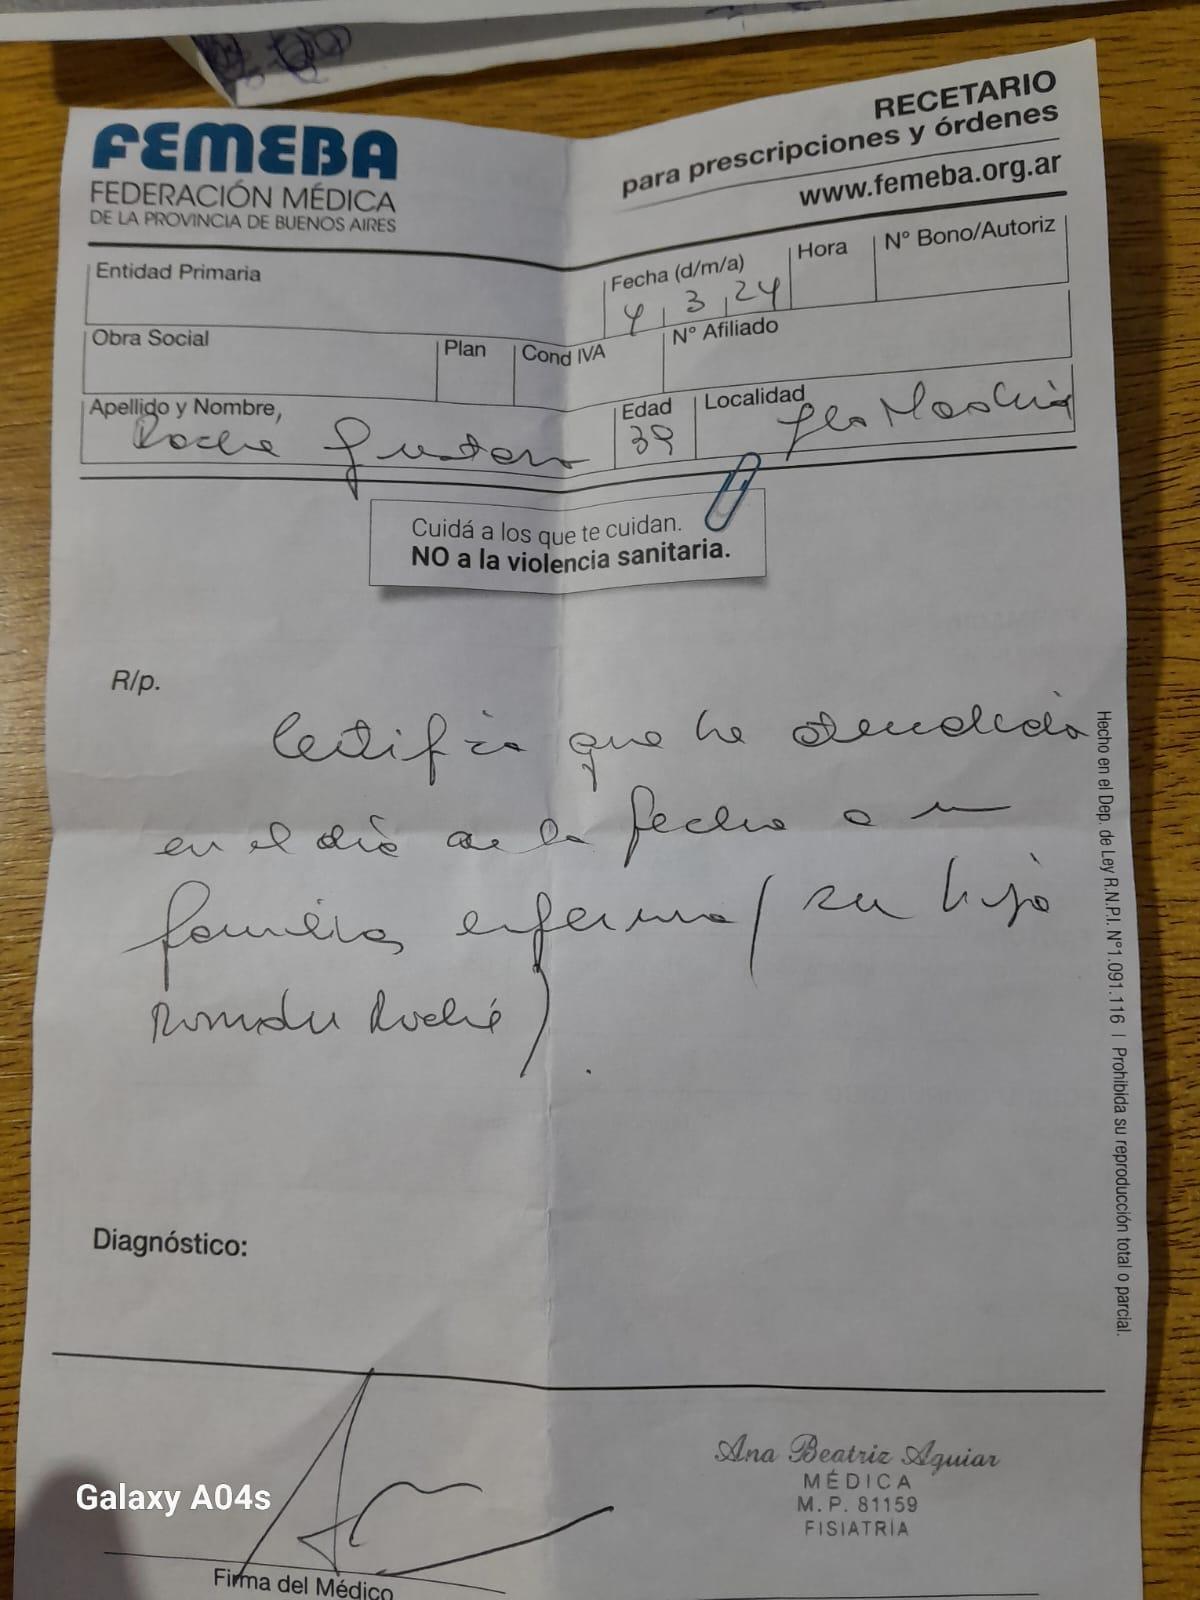 FEMEBA
FEDERACIÓN MÉDICA
DE LA PROVINCIA DE BUENOS AIRES
RECETARIO
para prescripciones y órdenes
www.femeba.org.ar
Entidad Primaria
Fecha (d/m/a)
4 3 24
Hora
Nº Bono/Autoriz
Obra Social
Plan
Cond IVA
Nº Afiliado
Apellido y Nombre,
Roche Gustavo
Edad
39
Localidad
Cuidá a los que te cuidan.
NO a la violencia sanitaria.
R/p.
Certifico que he atendido
en el día de la fecha a un
familiar enfermo (su hijo
Roché)
.
Hecho en el Dep. de Ley R.N.P.I. Nº1.091.116 | Prohibida su reproducción total o parcial.
Diagnóstico:
Ana Beatriz Aguiar
MÉDICA
M.P. 81159
FISIATRÍA
Galaxy A04s
Firma del Médico